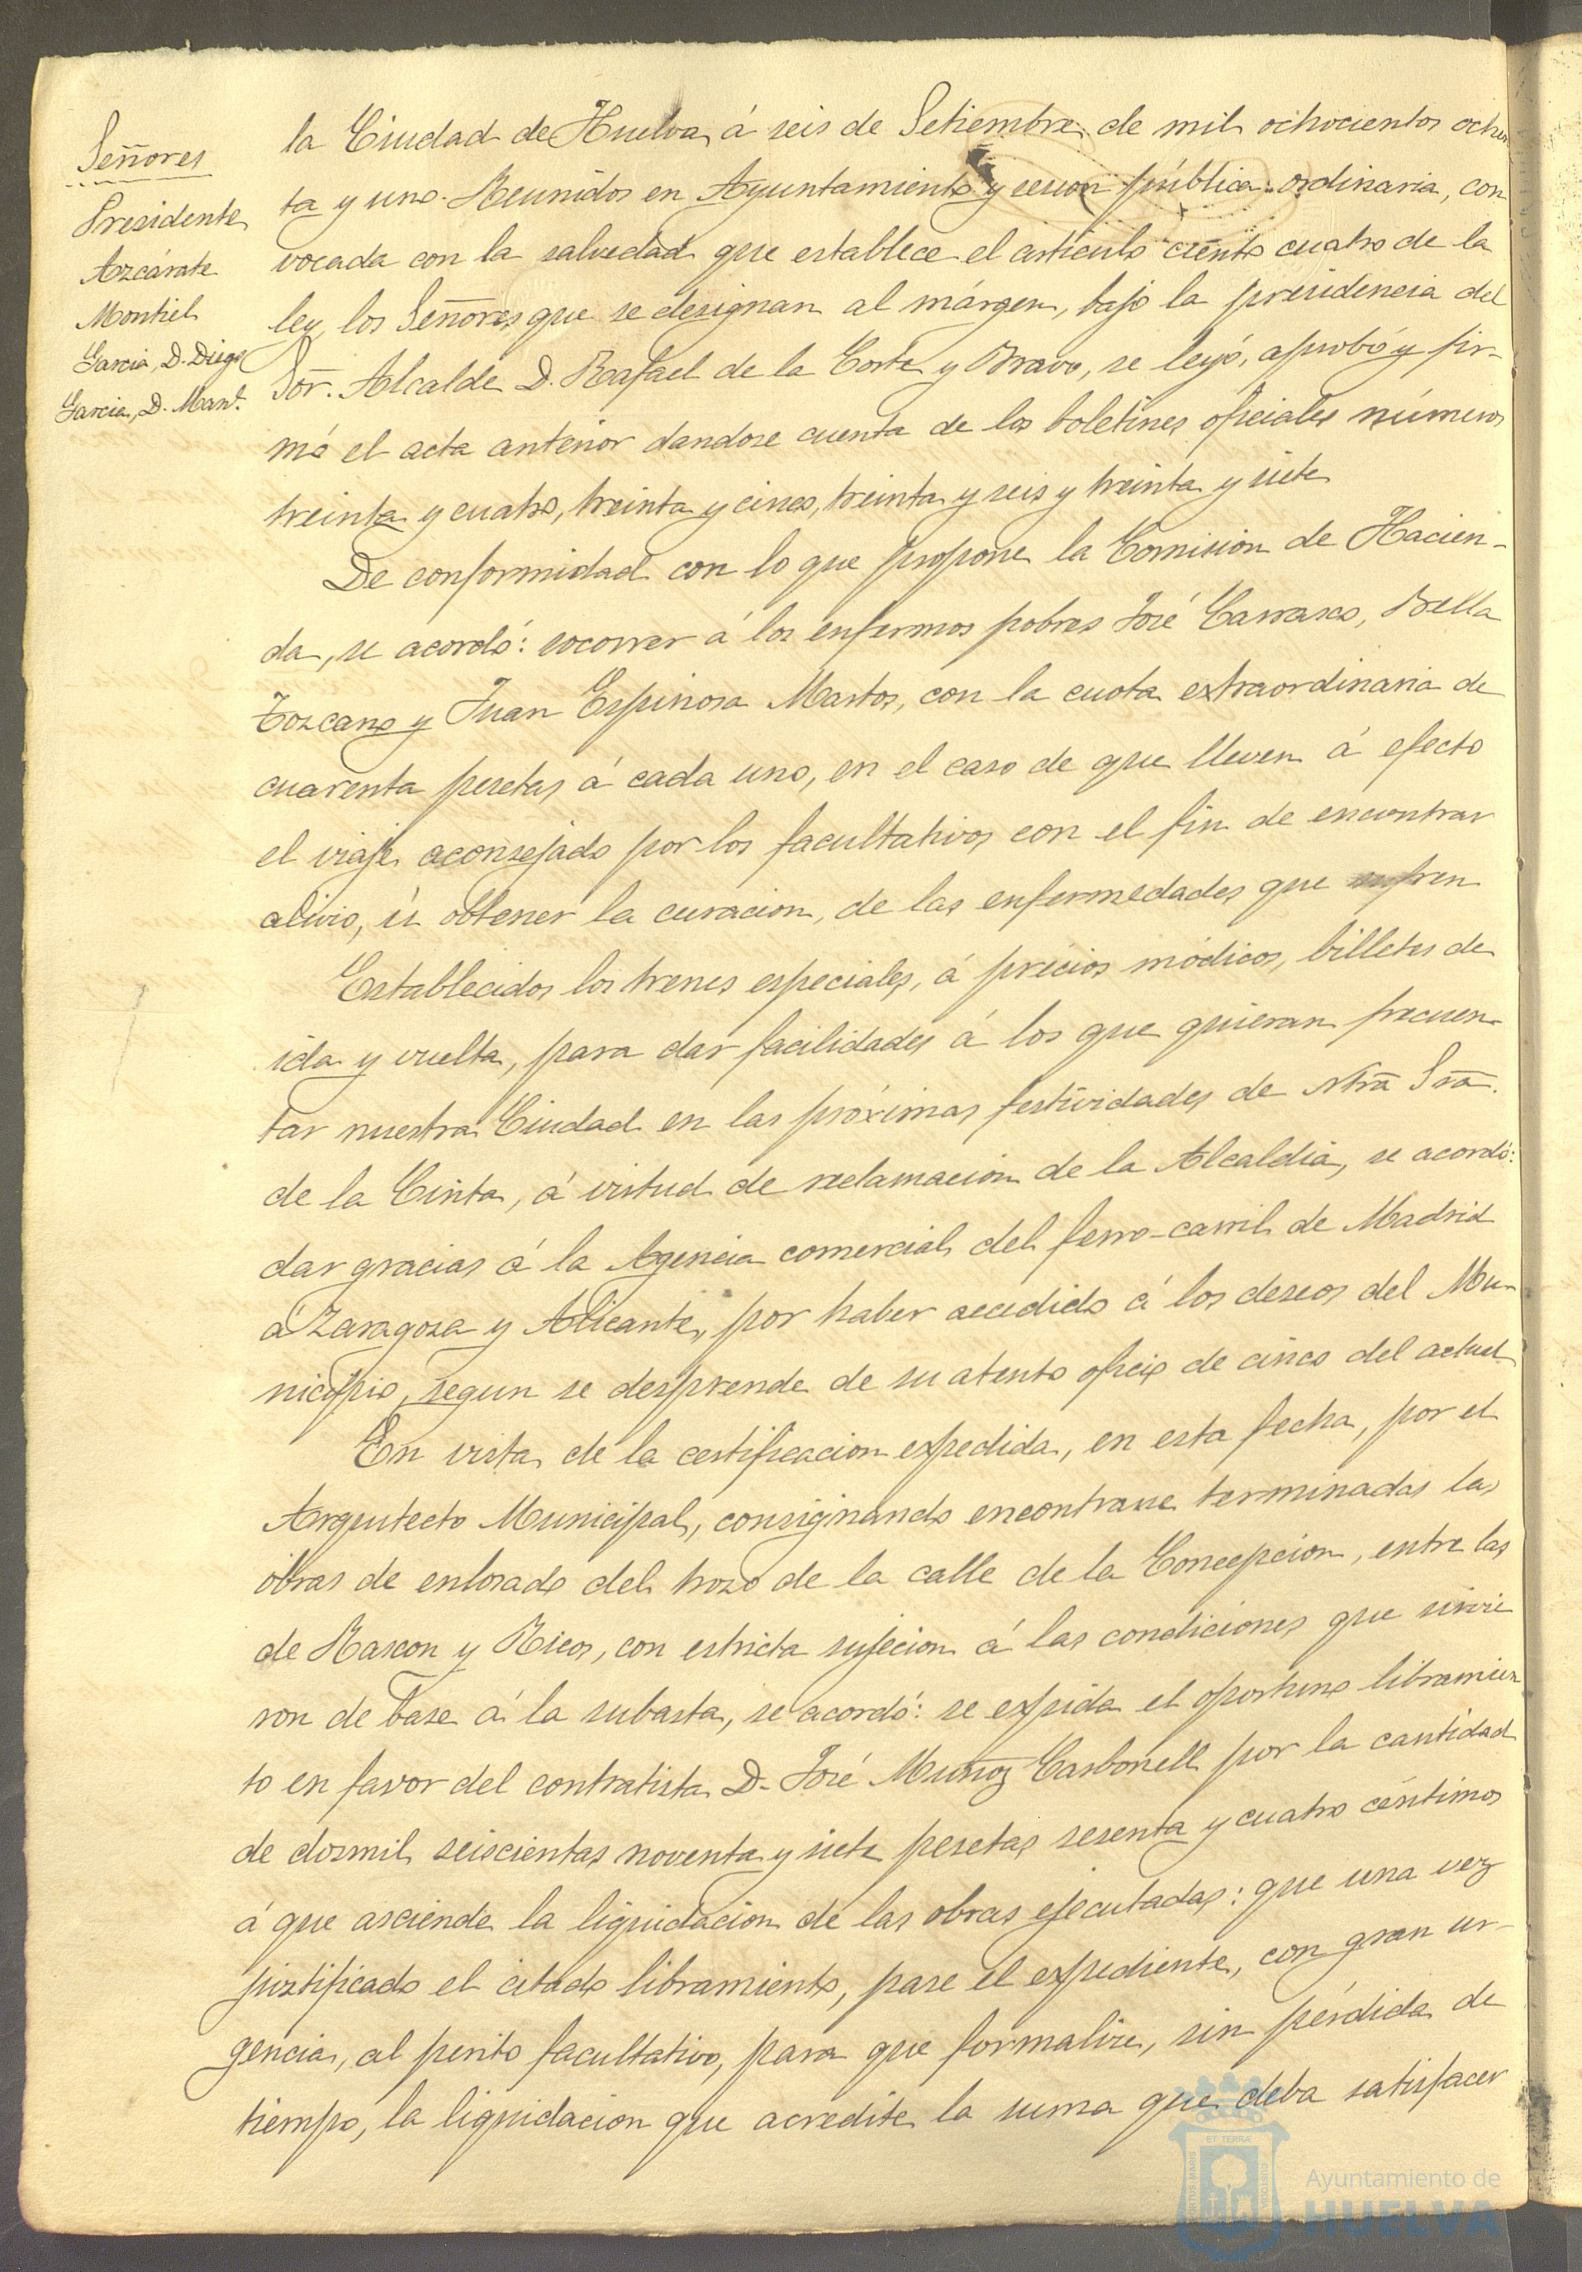 Señores
Presidente
Azcárate
Montiel
Garcia, D. Diego
Garcia, D. Manl.
la Ciudad de Huelva, á seis de Setiembre, de mil ochocientos ochen
ta y uno. Reunidos en Ayuntamiento y sesion pública ordinaria, con
vocada con la salvedad que establece el artículo ciento cuatro de la
ley, los Señores que se designan al márgen, bajo la presidencia del
Sor. Alcalde D. Rafael de la Corte y Bravo, se leyó, aprobó y fir-
mó el acta anterior dandose cuenta de los boletines oficiales números
treinta y cuatro, treinta y cinco, treinta y seis y treinta y siete
De conformidad con lo que propone la Comision de Hacien-
da, se acordó: socorrer á los enfermos pobres José Carrasco, Bella
Tozcano y Juan Espinosa Martos, con la cuota extraordinaria de
cuarenta pesetas á cada uno, en el caso de que lleven á efecto
el viaje aconsejado por los facultativos con el fin de encontrar
alivio, ú obtener la curacion, de las enfermedades que sufren
Establecidos los trenes especiales, á précios módicos, billetes de
ida y vuelta, para dar facilidades á los que quieran frecuen-
tar nuestra Ciudad en las próximas festividades de Ntra Sra.
de la Cinta, á virtud de reclamacion de la Alcaldia, se acordó:
dar gracias á la Agencia comercial del ferro-carril de Madrid
á Zaragoza y Alicante, por haber accedido á los deseos del Mu-
nicipio, segun se desprende de su atento oficio de cinco del actual
En vista de la certificacion expedida, en esta fecha, por el
Arquitecto Municipal, consignando encontrarse terminadas las
obras de enlosado del trozo de la calle de la Concepcion, entre las
de Rascon y Ricos, con estricta sujecion á las condiciones que sirvie
ron de base á la subasta, se acordó: se expida el oportuno libramien
to en favor del contratista D. José Muñoz Carbonell por la cantidad
de dosmil seiscientas noventa y siete pesetas sesenta y cuatro céntimos
á que asciende la liquidacion de las obras ejecutadas: que una vez
justificado el citado libramiento, pase el expediente, con gran ur-
gencia, al perito facultativo, para que formalice, sin pérdida de
tiempo, la liquidacion que acredite la suma que deba satisfacer
Ayuntamiento de
HUELVA